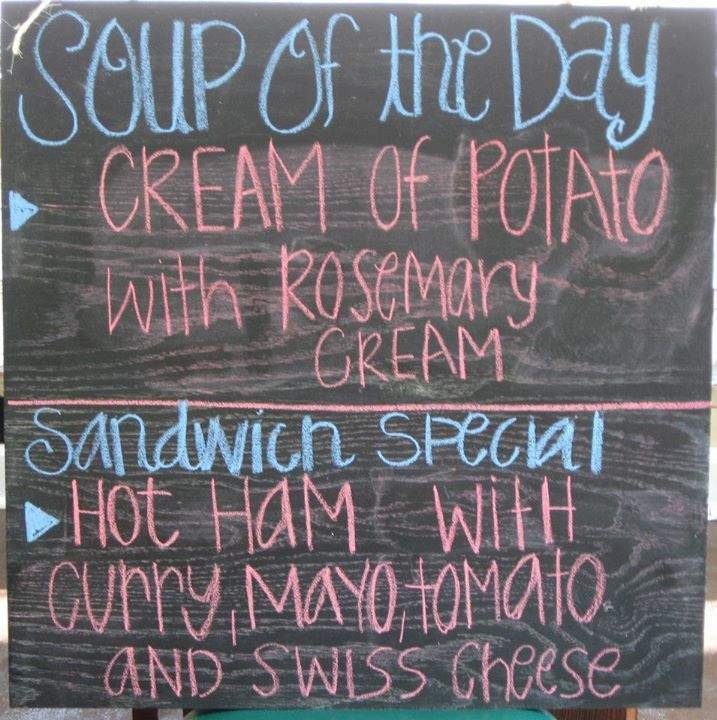 SOUP Of the Day
CREAM Of POtAtO
with ROSEMary
CREAM
Sandwich Special
HOt HaM WitH
CUrry, MAYO, tOMatO
AND SWISS Cheese